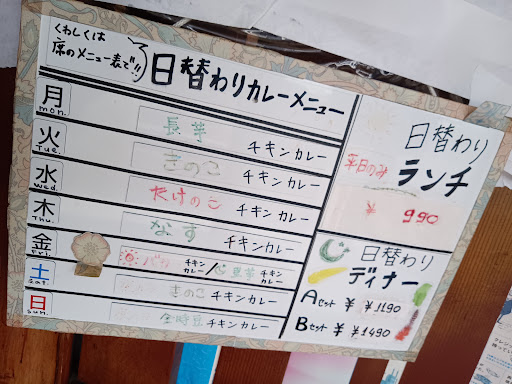 くわしくは
席のメニュー表で!!
日替わりカレーメニュー
月 mon. 長芋 チキンカレー
火 Tue. きのこ チキンカレー
水 Wed. たけのこ チキンカレー
木 Thu. なす チキンカレー
金 Fri. チキンカレー / チキンカレー
土 Sat. きのこ チキンカレー
日 Sun. 金時豆 チキンカレー
日替わり
平日のみ ランチ
¥ 990
日替わり
ディナー
Aセット ¥ ¥1190
Bセット ¥ ¥1490